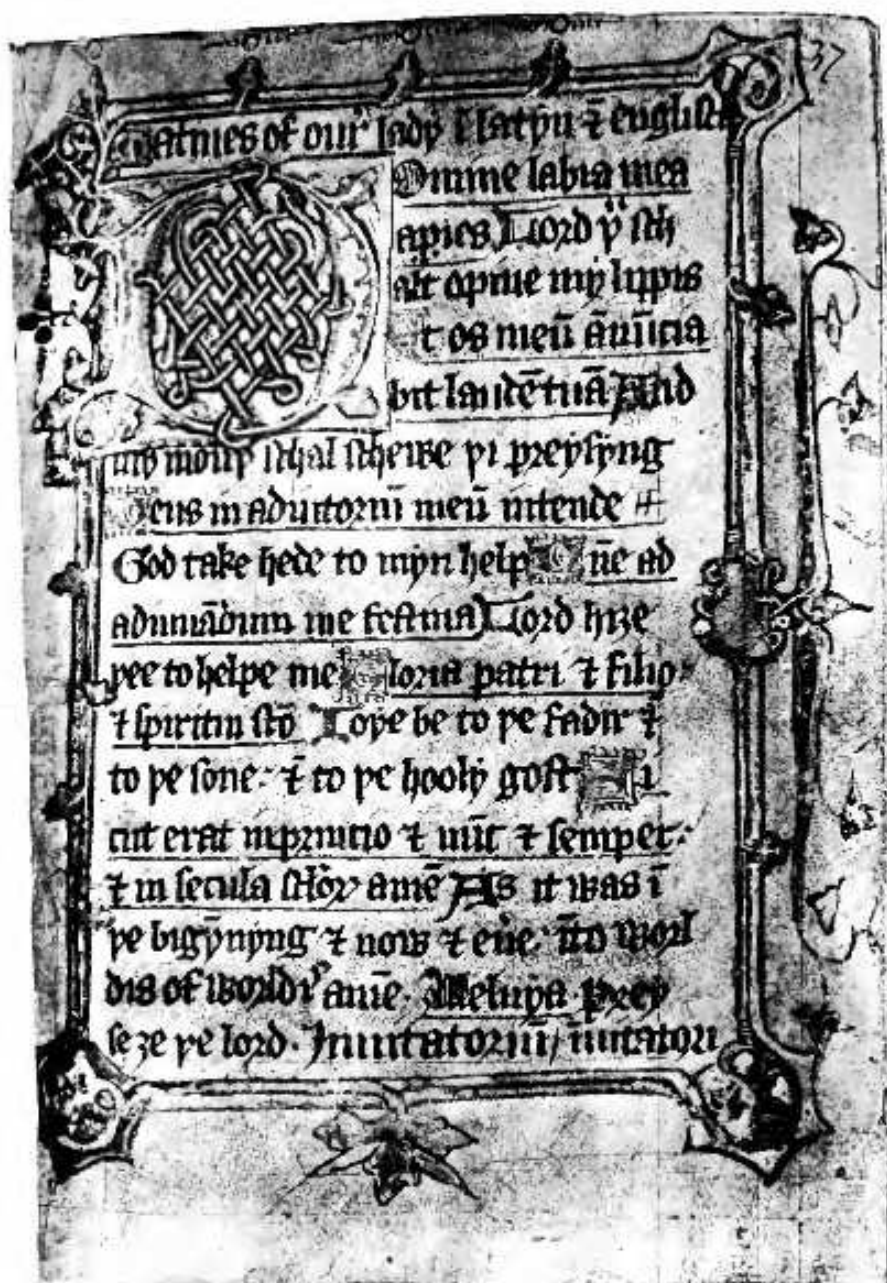 37
Matines of our lady i latyn ⁊ englisch
Domine labia mea
apies Lord þu sch
alt opene my lippis
Et os meū ānūcia
bit laudē tuā And
my mouþ schal schewe þi preysyng
Deus in adiutoriū meū intende
God take hede to myn help Dn̄e ad
adiuuādum me festina Lord hize
þee to helpe me Gloria patri ⁊ filio
⁊ spiritui sc̄o Ioye be to þe fadir ⁊
to þe sone: ⁊ to þe hooly gost Si
cut erat inprincio ⁊ nūc ⁊ semper:
⁊ in secula sclo̅ꝝ amē As it was ī
þe bigȳnyng ⁊ now ⁊ eūe: īto worl
dis of worldis ame. Alleluya. prey
se ȝe þe lord. Inuitatoriū / inuitatori